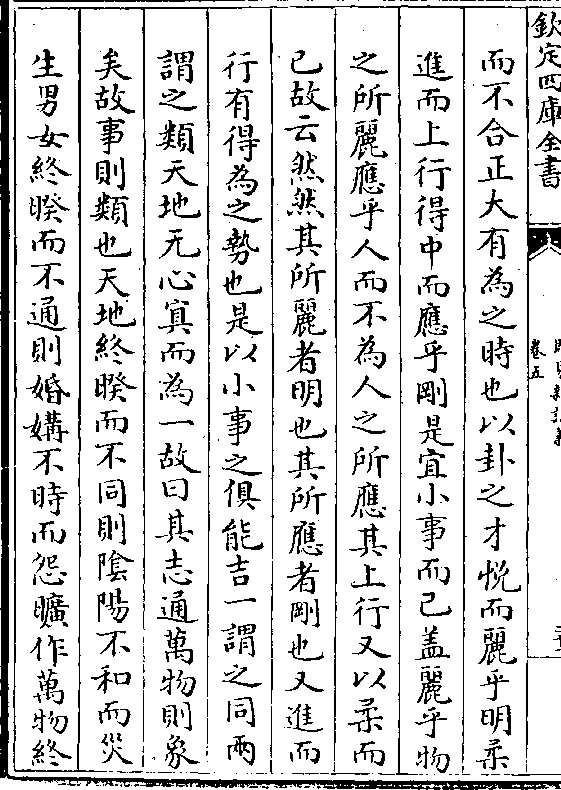 欽定四庫全書
卷五
而不合正大有為之時也以卦之才悅而麗乎明柔
進而上行得中而應乎剛是宜小事而已盖麗乎物
之所麗應乎人而不為人之所應其上行又以柔而
已故云然然其所麗者明也其所應者剛也又進而
行有得為之勢也是以小事之俱能吉一謂之同兩
謂之類天地无心寘而為一故曰其志通萬物則象
矣故事則類也天地終睽而不同則陰陽不和而災
生男女終睽而不通則婚媾不時而怨曠作萬物終